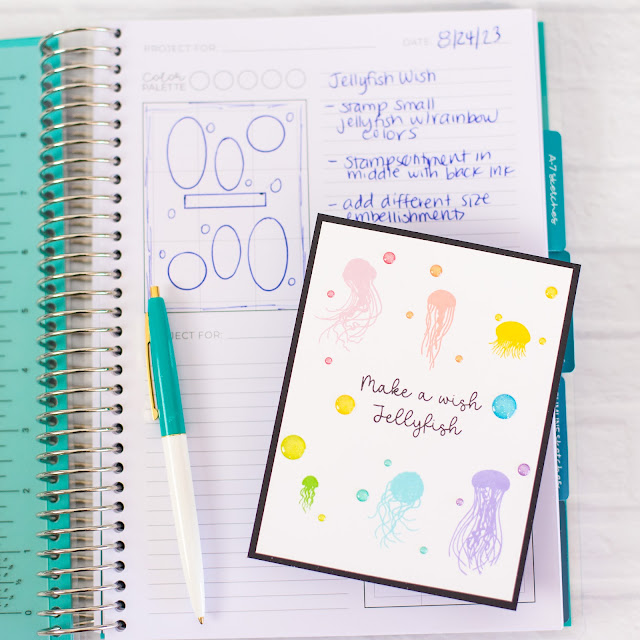 PROJECT FOR:
DATE: 8/24/23
Color
PALETTE
Jellyfish Wish
- stamp small
jellyfish w/rainbow
colors
- stamp sentiment in
middle with back ink
- add different size
embellishments
A-7 Sketches
PROJECT FOR:
Make a wish
Jellyfish